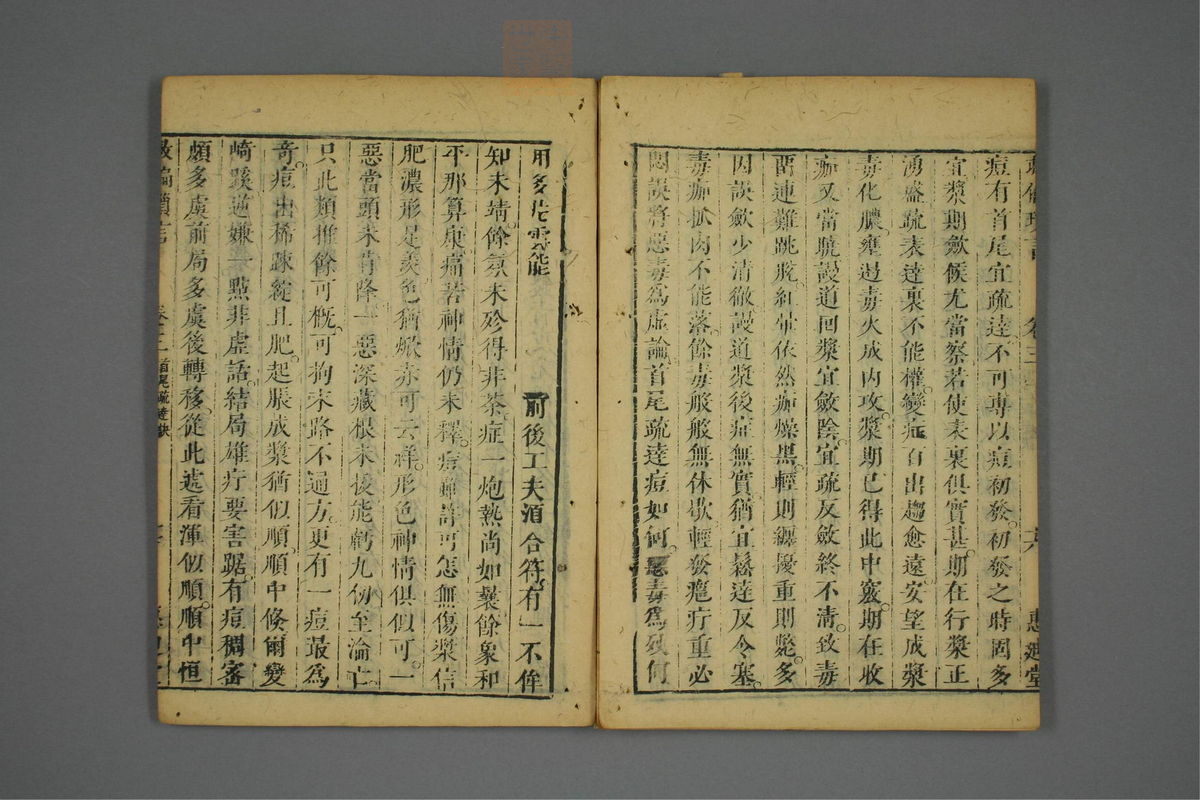 痘有首尾宜疏達不可專以痘初發初發之時固多
宜漿期斂候尤當察若使表裏俱實甚期在行漿正
湧盛疏表達裏不能權變症百出趨愈遠安望成漿
毒化膿壅遏毒火成內攻漿期已得此中竅期在收
痂又當曉謾道回漿宜斂陰宜疏反斂終不清致毒
留連難跳脫紅暈依然痂燥黑輕則纏擾重則斃多
因誤斂少清徹謾道漿後症無實猶宜鬆達反令塞
毒痂抓肉不能落餘毒般般無休歇輕發癰疔重必
悶誤將惡毒為虛論首尾疏達痘如何惡毒為殃何
用多
前後工夫須合符有一不侔
知未靖餘氛未殄得非荼症一炮熱尚如曩餘象和
平那算康痛若神情仍未釋痘雖許可怎無傷漿信
肥濃形足羨色猶焮赤可云祥形色神情俱似可一
惡當頭未肯降一惡深藏根未拔能虧九仞至淪亡
只此類推餘可概可拘末路不通方更有一痘最為
奇痘出稀疎綻且肥起脹成漿猶似順順中倏爾變
崎蹊逆嫌一點非虛話結局雄疔要害踞有痘稠密
頗多虞前局多虞後轉移從此遞看渾似順順中恒
卷三 首尾疏達訣